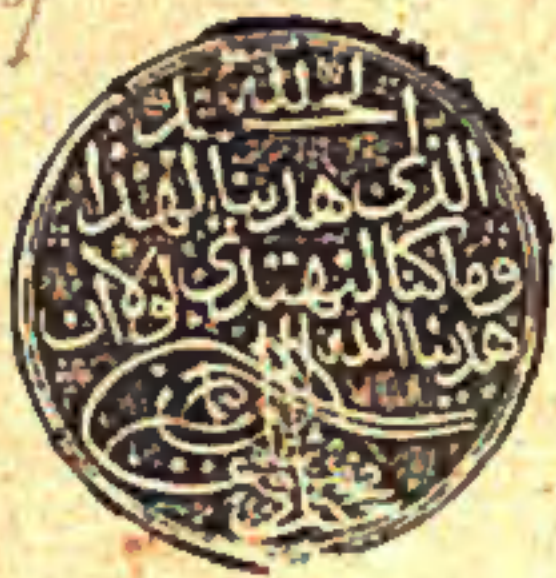 الحمد لله
الذى هدينا لهذا
وما كنا لنهتدي لولا ان
هدينا الله